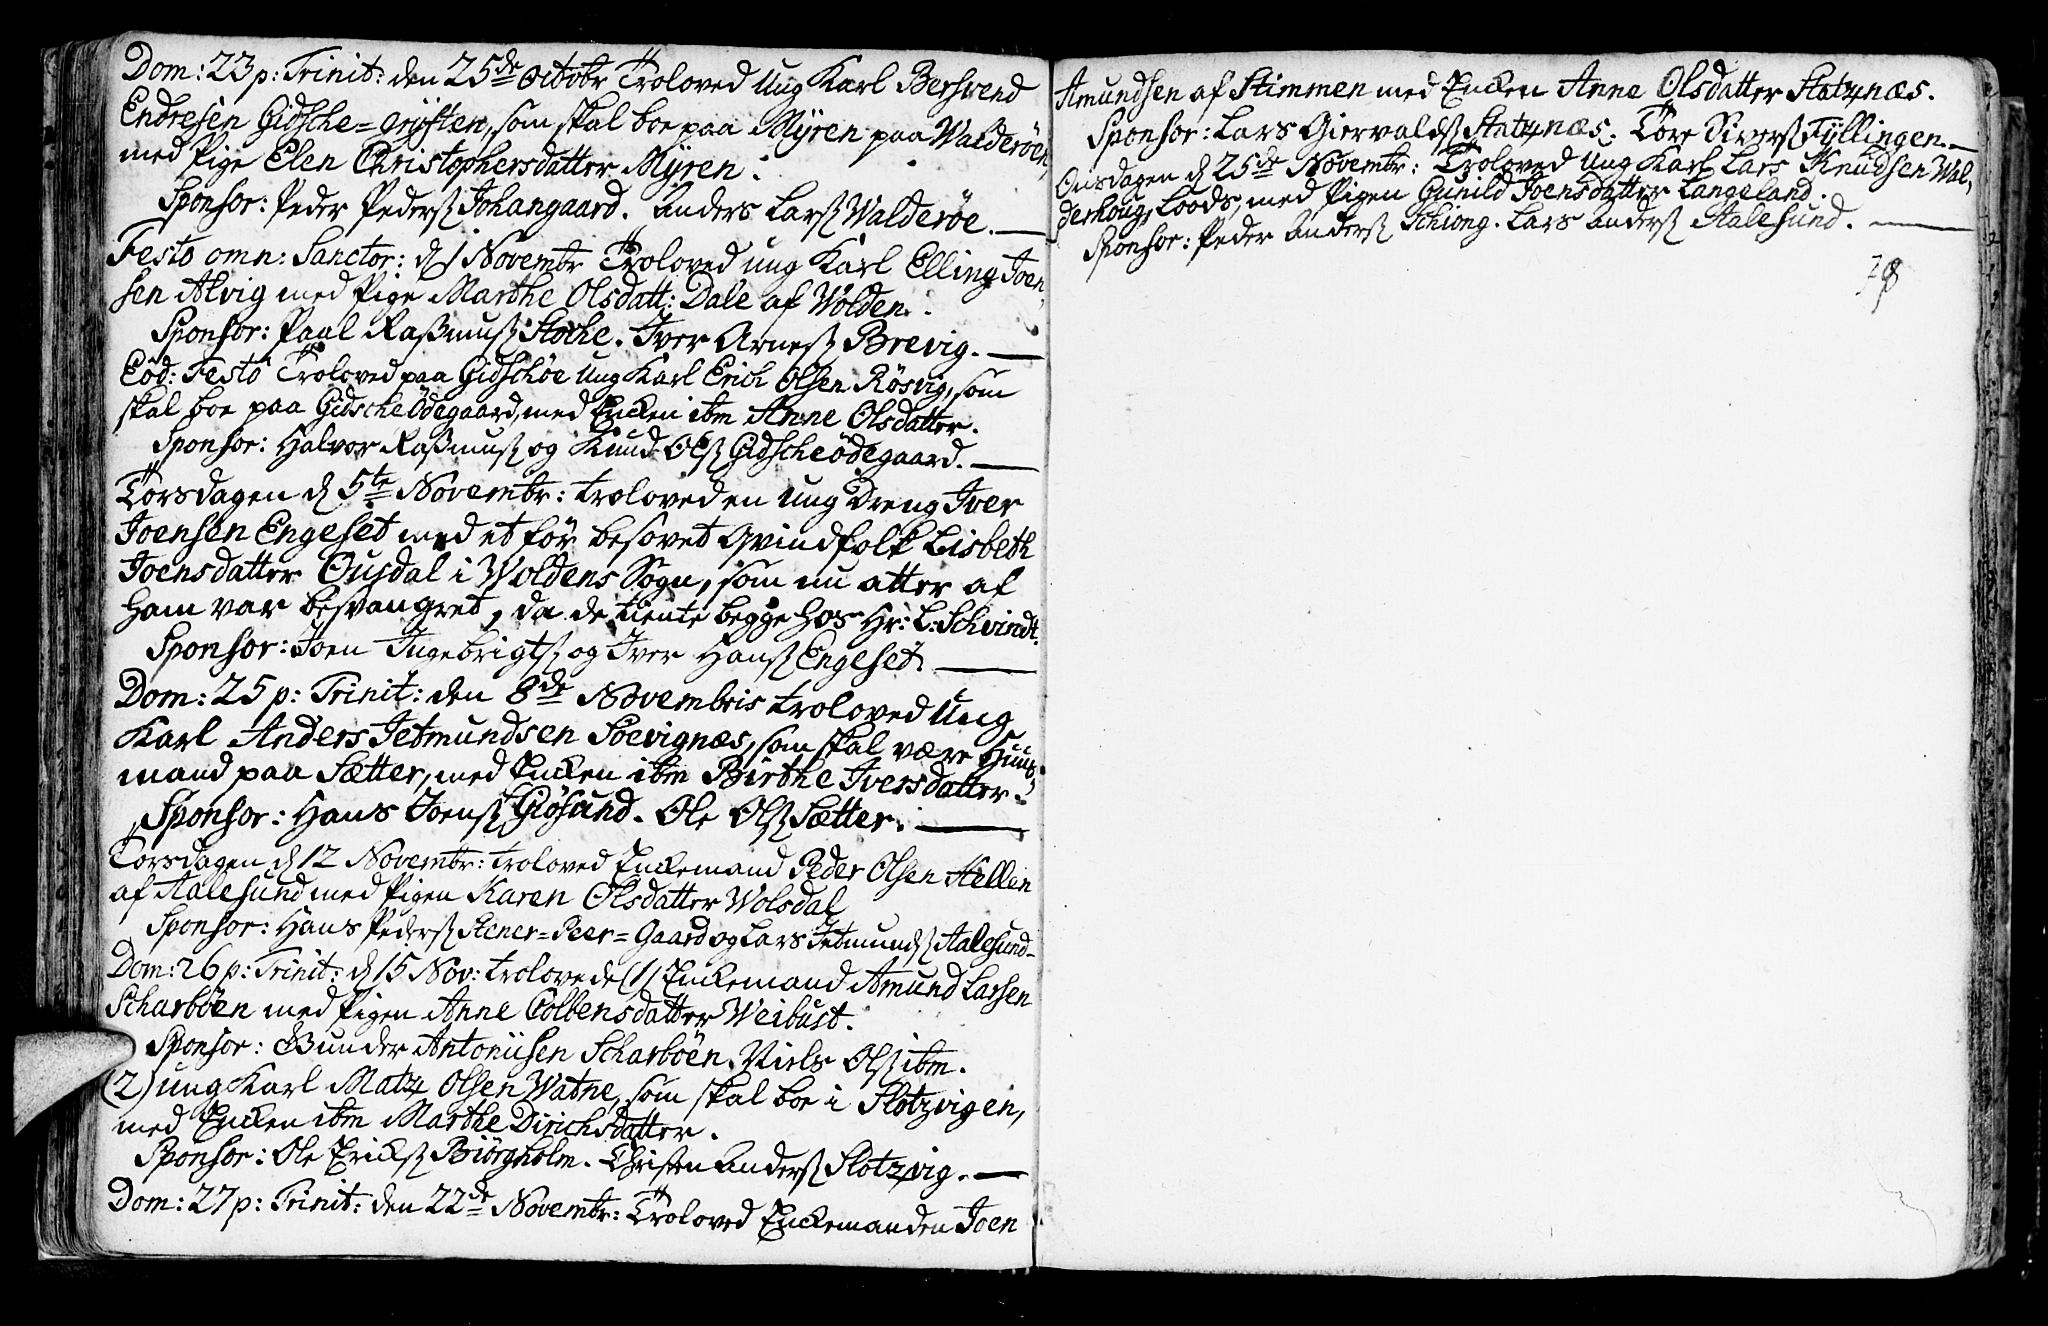 Dom: 23 p: Trinit: den 25de Octobr Troloved Ung Karl Bersvend
Endresen Gidsche=grÿften, som skal boe paa Mÿren paa Walderöen,
med Pige Elen Christophersdatter Mÿren.
Sponsor: Peder Peders Johangaard. Anders Lars Walderöe.
Festo omn: Sanctor: d 1 Novembr Troloved ung Karl Elling Joen,
sen Alvig med Pige Marthe Olsdatt: Dale af Wolden.
Sponsor: Paul Rasmus Stoche. Iver Arnes Brevig.
Eod: Festo Troloved paa Gidschöe Ung Karl Erich Olsen Rösvig, som
skal boe paa Gidsche Ödegaard, med Encken ibm Anne Olsdatter.
Sponsor: Halvor Rasmus og Knud Ols Gidscheödegaard.
Torsdagen d 5te Novembr: troloved en ung Dreng Iver
Joensen Engeset med et för besovet Qvindfolk Lisbeth
Joensdatter Ousdal i Woldens Sogn, som nu atter af
ham var besvangret, da de tiente begge hos Hr: L: Schvindt.
Sponsor: Joen Ingebrigts og Iver Hans Engeset.
Dom: 25 p: Trinit: den 8de Novembris troloved Ung
Karl Anders Jetmundsen Soevignæs, som skal være Huus,
mand paa Sætter, med Encken ibm Birthe Iversdatter.
Sponsor: Hans Joens Giösund. Ole Ols Sætter.
Torsdagen d 12 Novembr: troloved Enckemand Peder Olsen Hellen
af Aalesund med Pigen Karen Olsdatter Wolsdal
Sponsor: Hans Peders Stener=Peer=Gaard og Lars Jetmunds Aalesund
Dom: 26 p: Trinit: d 15 Nov: trolovede (1) Enckemand Amund Larsen
Scharböen med Pigen Anne Colbensdatter Weibust.
Sponsor: Gunder Antoniisen Scharböen. Niels Ols ibm.
(2) ung Karl Matz Olsen Watne, som skal boe i Slotzvigen,
med Encken ibm Marthe Dirichsdatter.
Sponsor: Ole Ericks Biörgholm. Christen Anders Slotzvig.
Dom: 27 p: Trinit: den 22de Novembr: Troloved Enckemanden Joen
Amundsen af Stimmen med Encken Anne Olsdatter Statznæs.
Sponsor: Lars Giervalds Statznæs. Tore Sivers Fÿllingen.
Onsdagen d 25de Novembr: Troloved Ung Karl Lars Knudsen Wal,
derhoug, Loods, med Pigen Gunild Joensdatter Langeland.
Sponsor: Peder Anders Schiong. Lars Anders Aalesund.